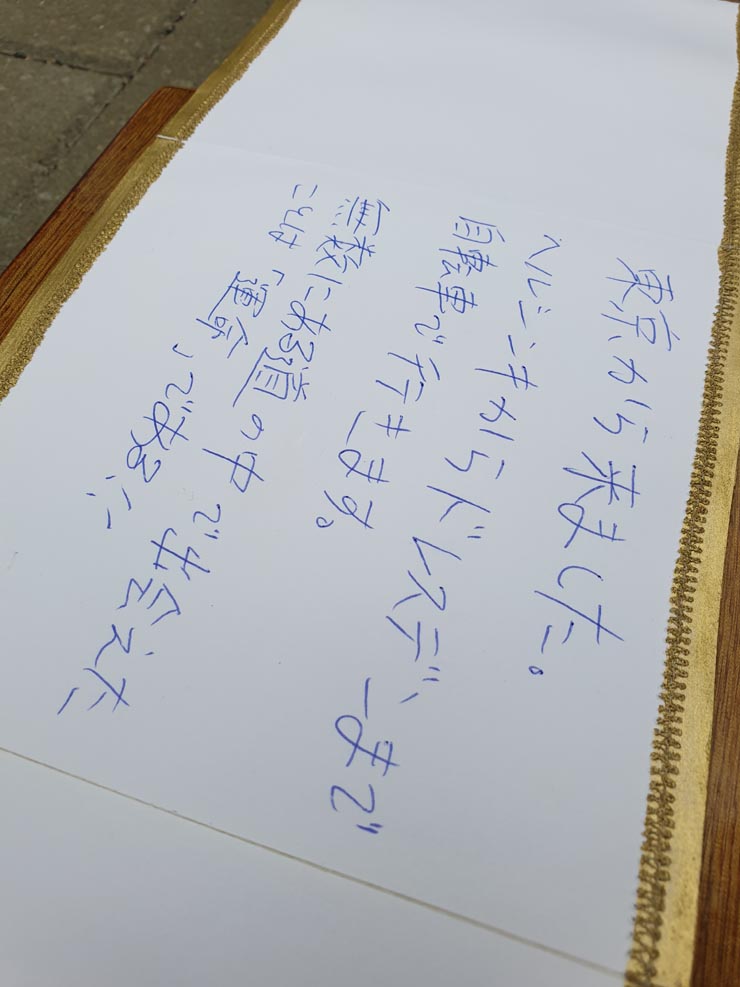 東京から来ました。
ヘルシンキからドレスデンまで
自転車で行きます。
無数にある道の中で出会えた
ことは「運命」である